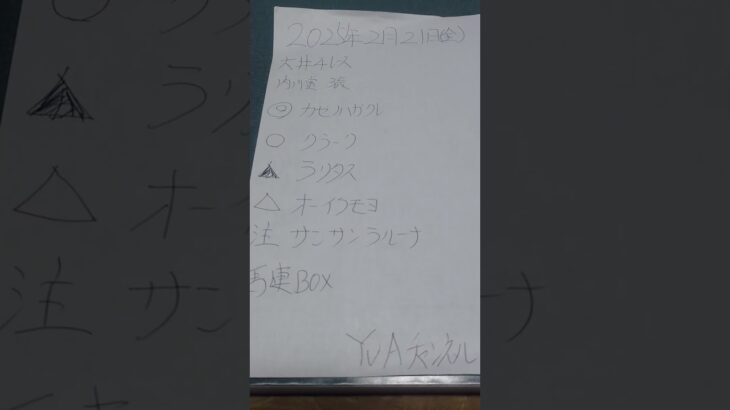 2025年2月21日(金)
大井4レス
内川渡 派
◎ カセノハガクレ
○ クラーク
▲ ラリタス
△ オーイクモヨ
注 サンサンラルーナ
馬連BOX
YUAチャンネル